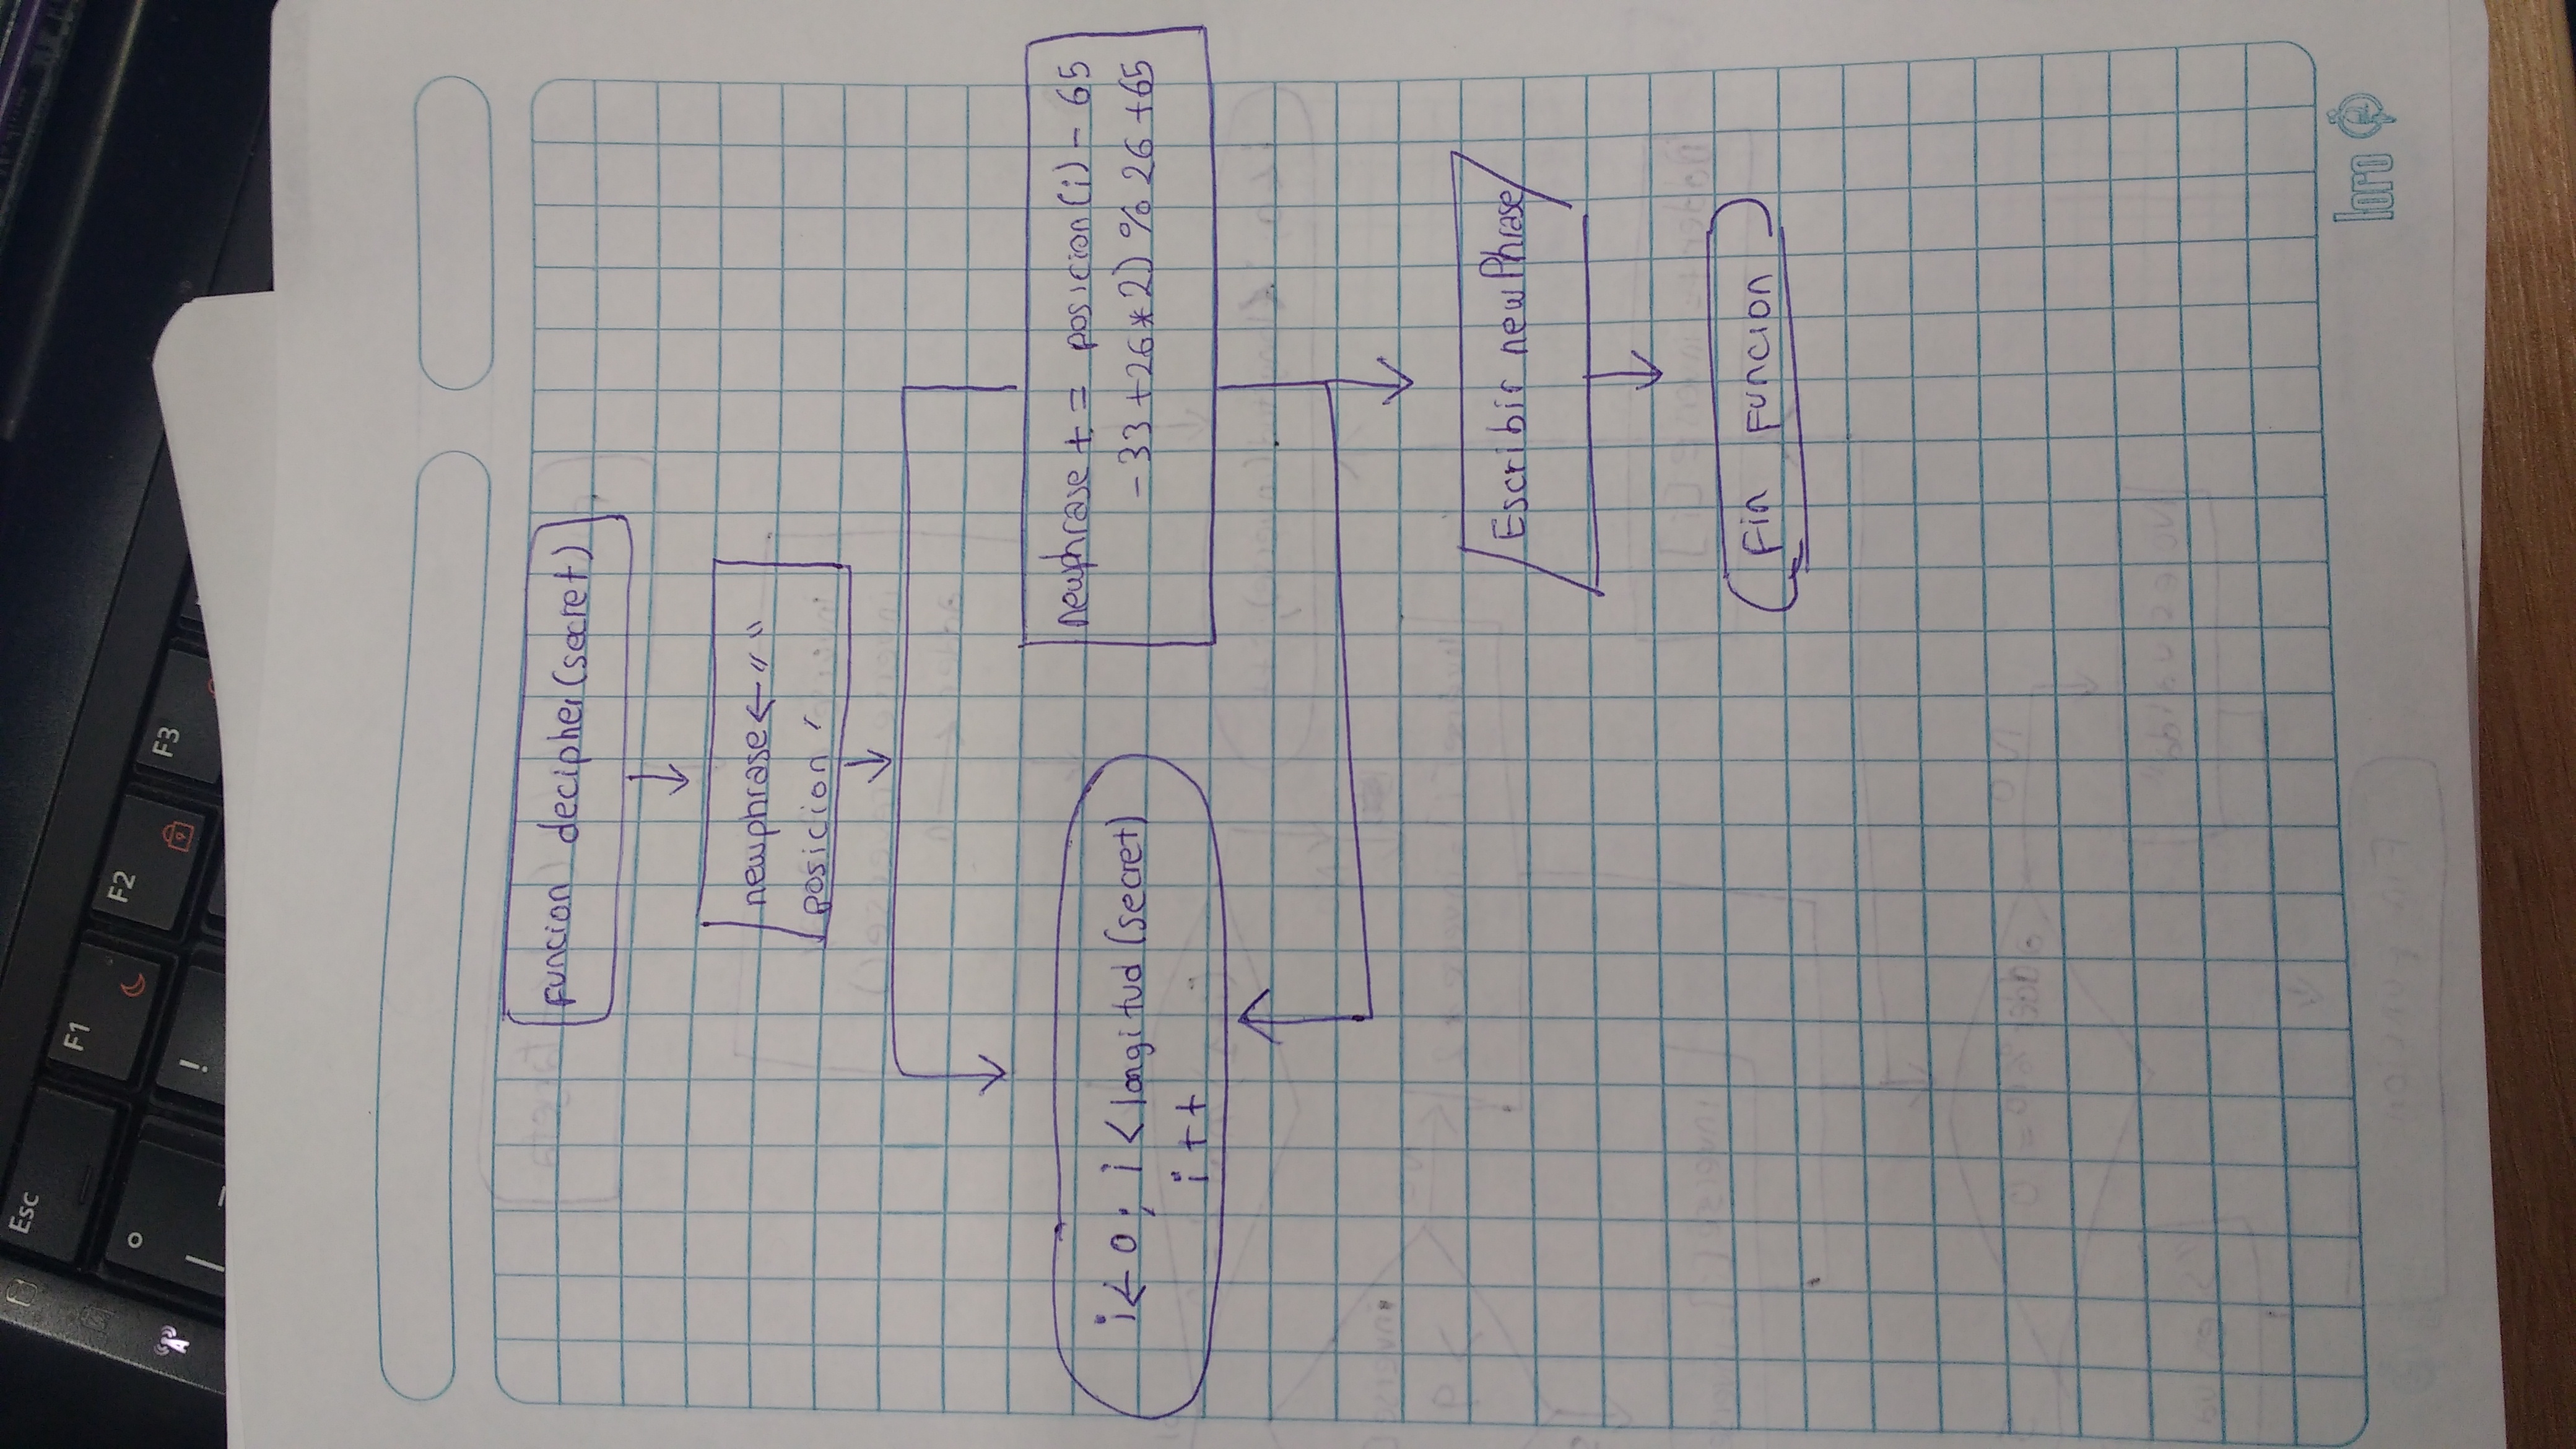 Esc
F1
F2
F3
!
funcion decipher(secret)
newphrase ← “ ”
posicion
i ← 0; i < longitud (secret)
i ++
newphrase + = posicion(i) - 65
-33 +26*2) % 26 +65
Escribir newPhrase
Fin funcion
loro